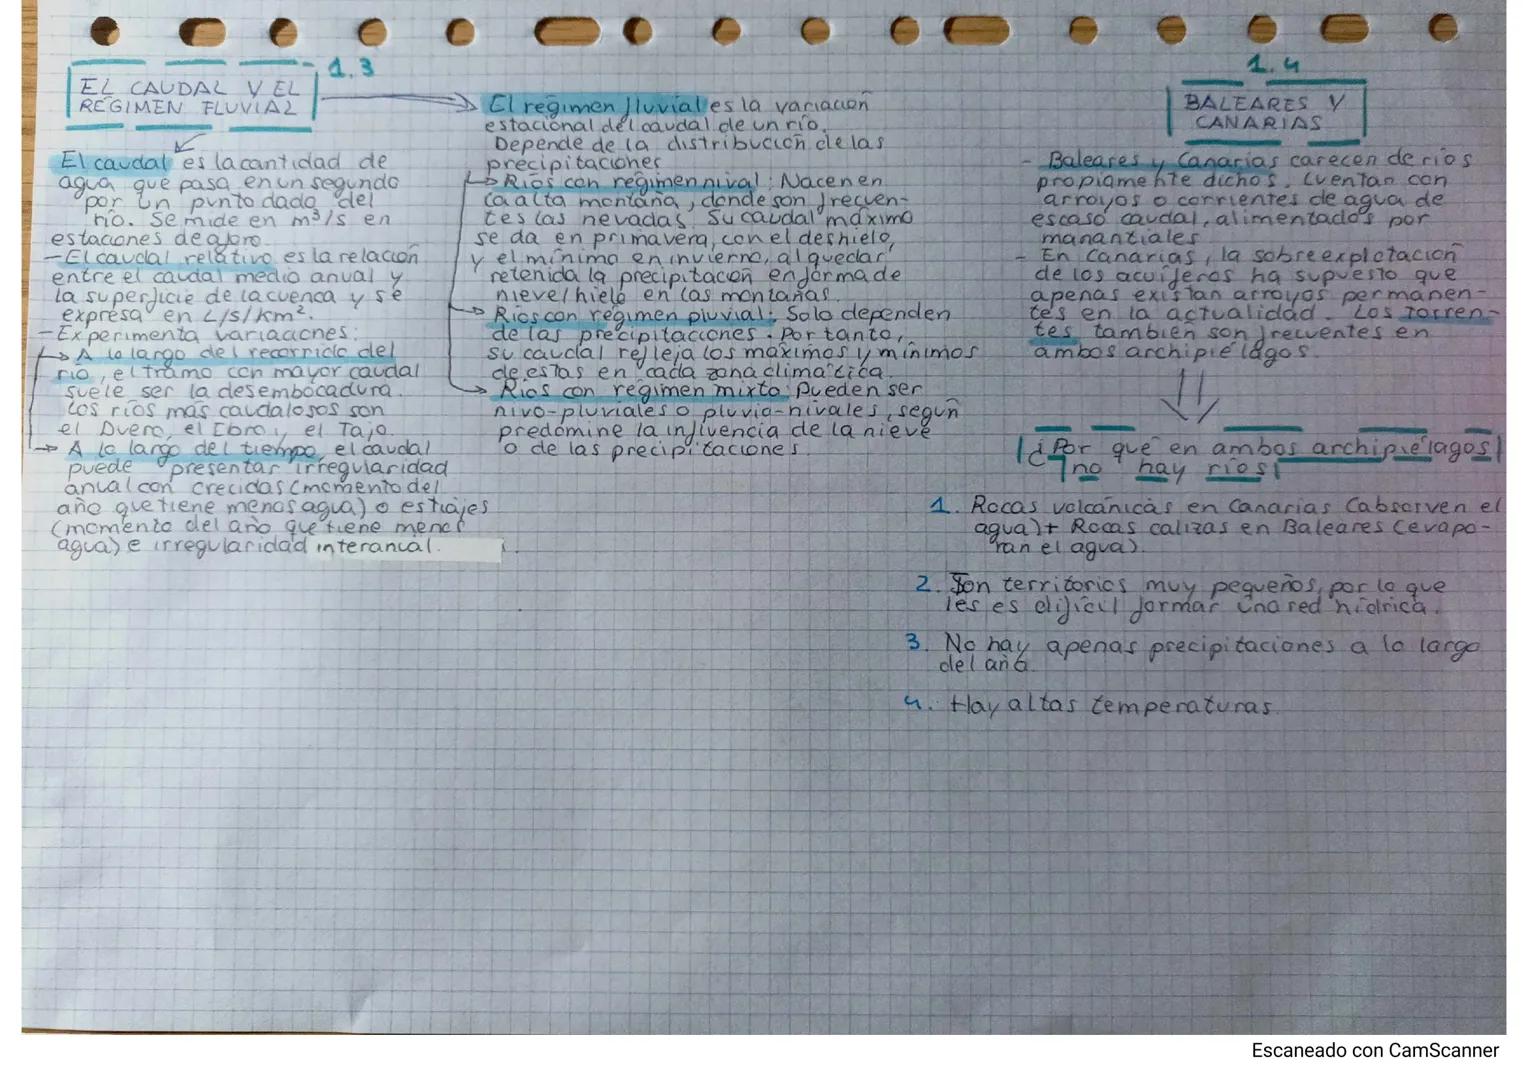 1.3
EL CAUDAL Y EL
RÉGIMEN FLUVIAL
El caudal es la cantidad de
agua que pasa en un segundo
por un punto dado del
río. Se mide en m³/s en
estaciones de aforo.
- El caudal relativo es la relación
entre el caudal medio anual y
la superficie de la cuenca y se
expresa en L/s/km².
- Experimenta variaciones:
→ A lo largo del recorrido del
río, el tramo con mayor caudal
suele ser la desembocadura.
Los ríos más caudalosos son
el Duero, el Ebro y el Tajo.
→ A lo largo del tiempo, el caudal
puede presentar irregularidad
anual con crecidas (momento del
año que tiene menos agua) o estiajes
(momento del año que tiene menos
agua) e irregularidad interanual.
El régimen fluvial es la variación
estacional del caudal de un río.
Depende de la distribución de las
precipitaciones
→ Ríos con régimen nival: Nacen en
la alta montaña, donde son frecuen-
tes las nevadas. Su caudal máximo
se da en primavera, con el deshielo,
y el mínimo en invierno, al quedar
retenida la precipitación en forma de
nieve/hielo en las montañas.
→ Ríos con régimen pluvial: Solo dependen
de las precipitaciones. Por tanto,
su caudal refleja los máximos y mínimos
de estas en cada zona climática.
→ Ríos con régimen mixto: Pueden ser
nivo-pluviales o pluvio-nivales, según
predomine la influencia de la nieve
o de las precipitaciones
1.4
BALEARES Y
CANARIAS
- Baleares y Canarias carecen de ríos
propiamente dichos. Cuentan con
arroyos o corrientes de agua de
escaso caudal, alimentados por
manantiales
- En Canarias, la sobreexplotación
de los acuíferos ha supuesto que
apenas existan arroyos permanen-
tes en la actualidad. Los torren-
tes también son frecuentes en
ambos archipiélagos.
¿Por qué en ambos archipiélagos
no hay ríos?
1. Rocas volcánicas en Canarias (absorven el
agua) + Rocas calizas en Baleares (evapo-
ran el agua).
2. Son territorios muy pequeños, por lo que
les es difícil formar una red hídrica.
3. No hay apenas precipitaciones a lo largo
del año.
4. Hay altas temperaturas.
Escaneado con CamScanner